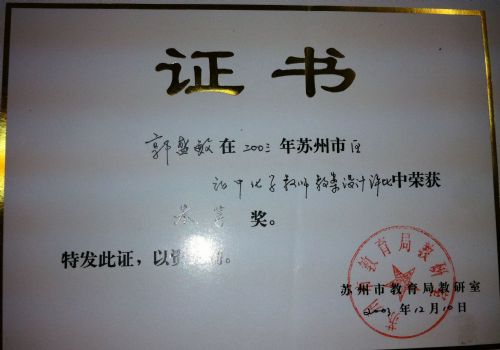 证书
郭盛敏在2003年苏州市区
初中化学教师教案设计评比中荣获
等奖。
特发此证，以资
苏州市教育局教研室
2003年12月10日
苏州市教育局教研室